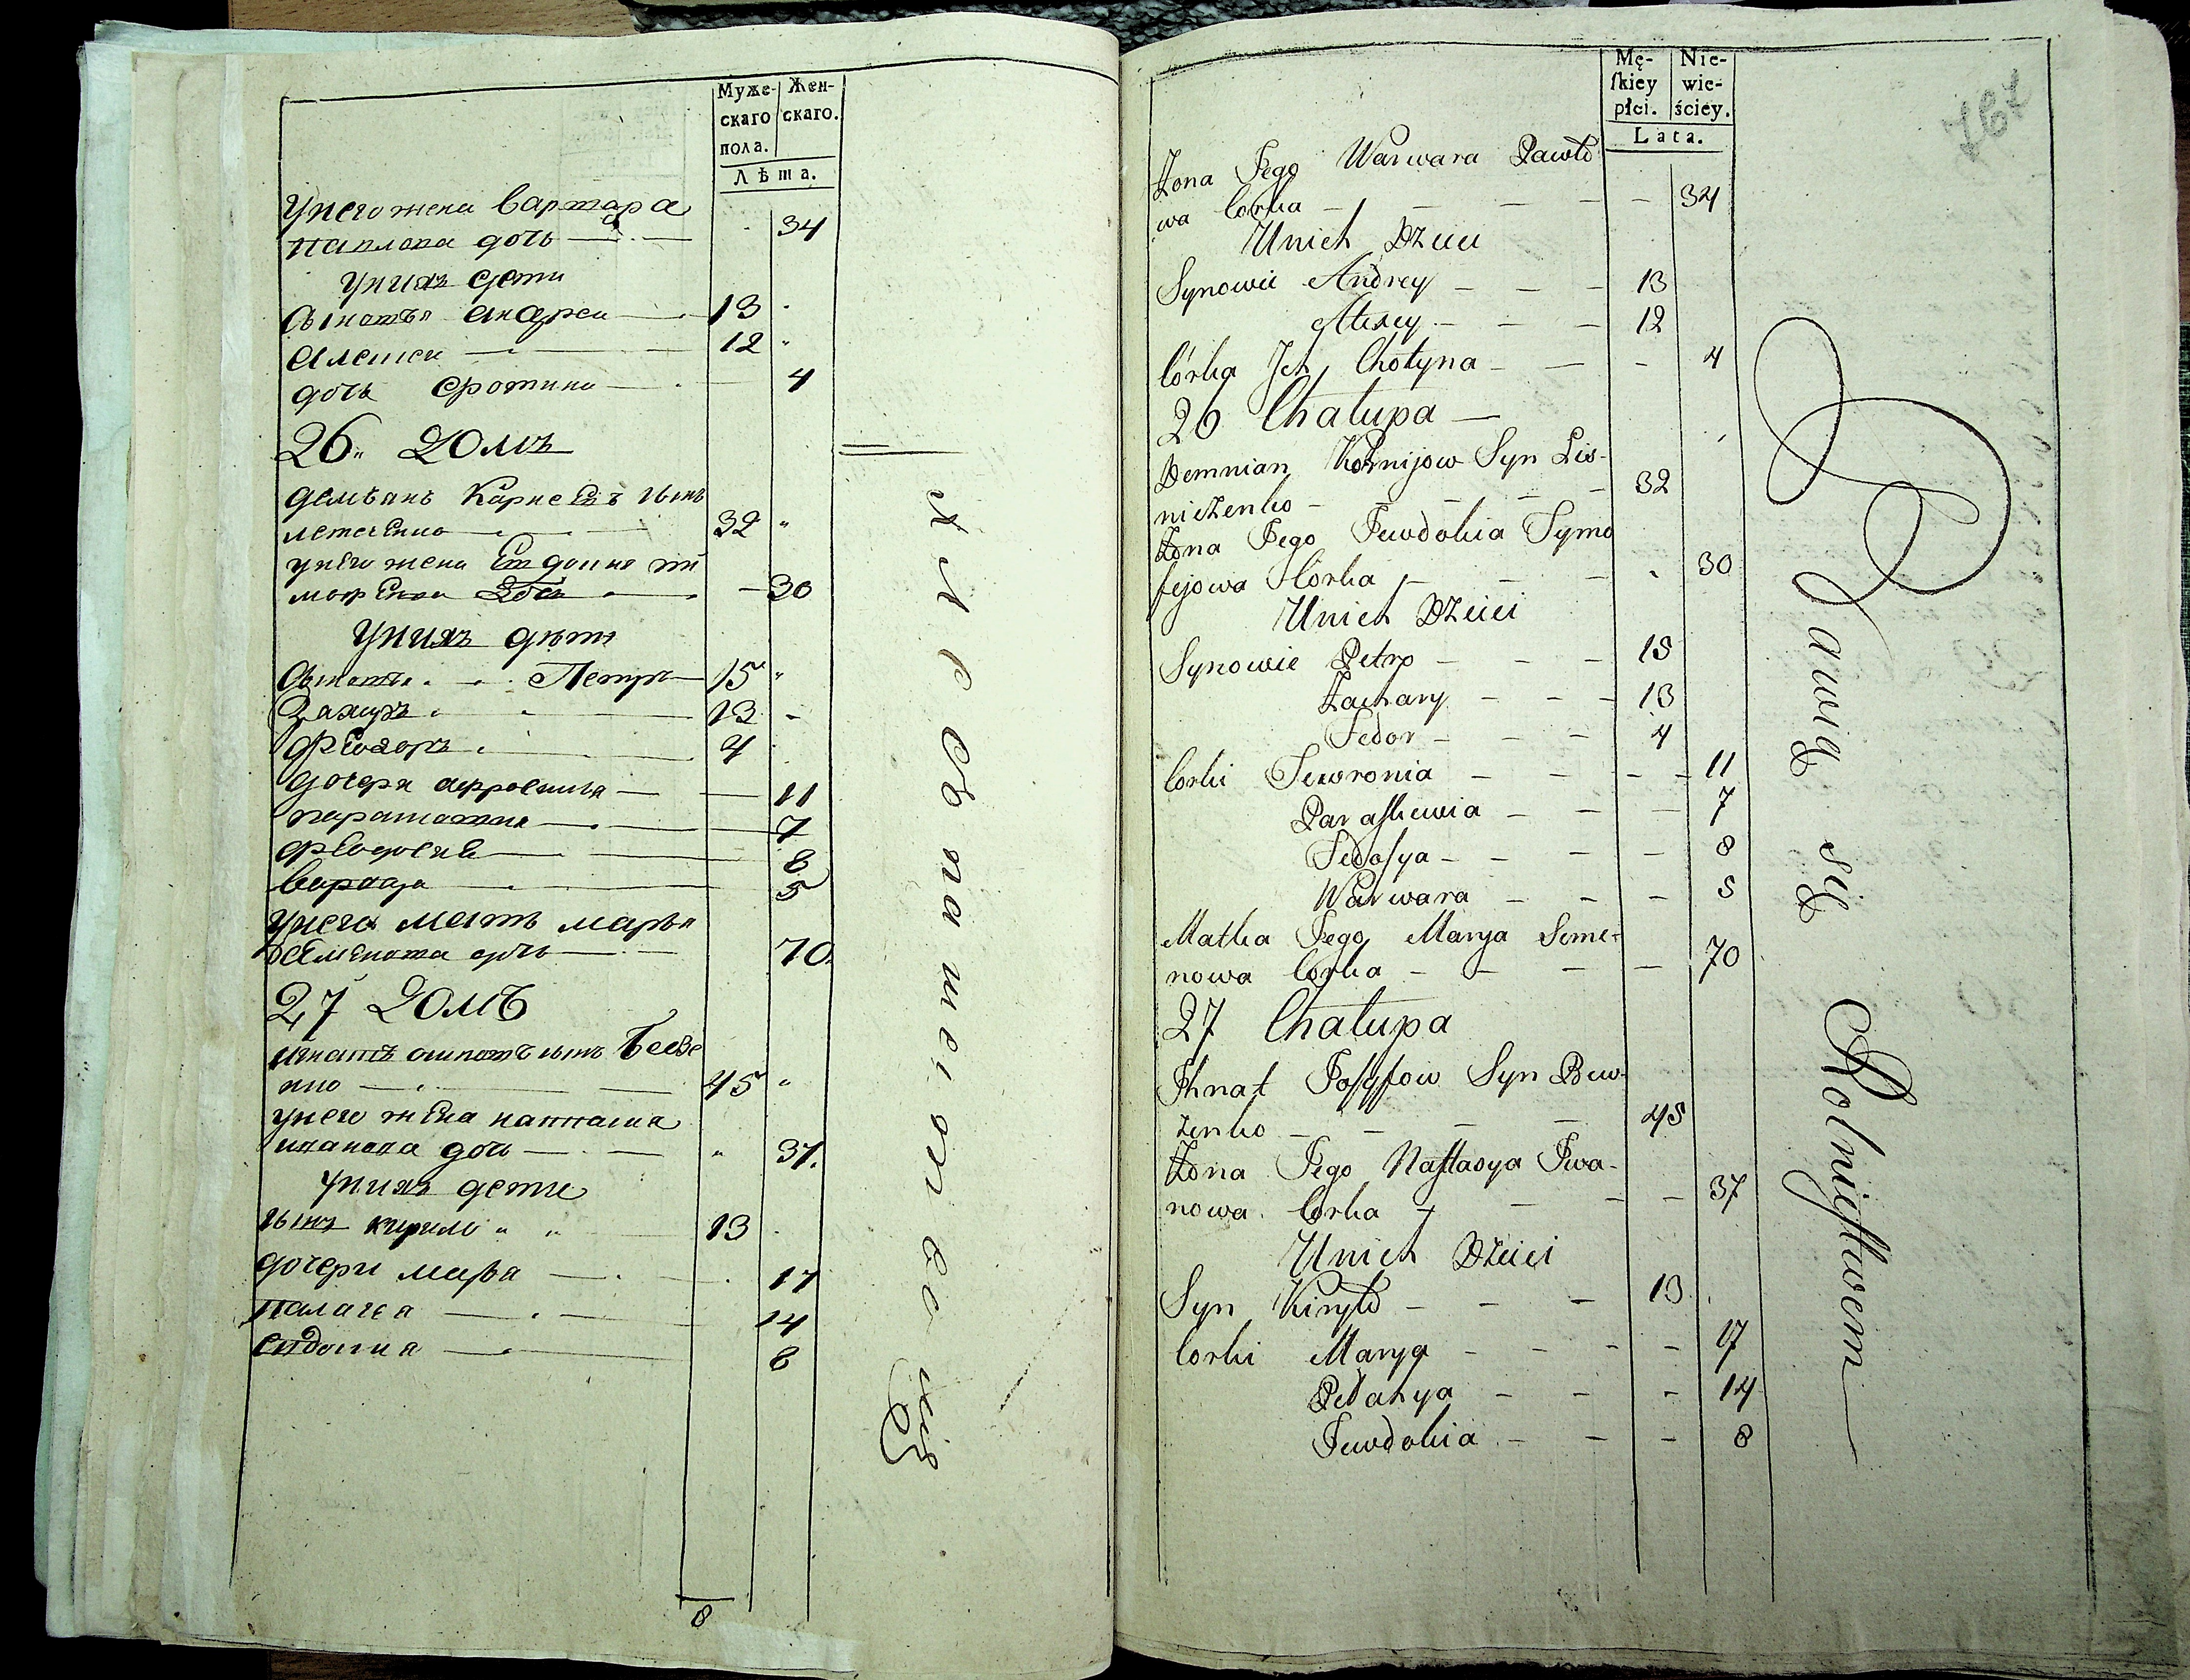 Муже-
скаго
пола.
Жен-
скаго.
Лѣта.
У него жена Варвара
Павлова дочь — 34
У нихъ дети
Сыновья Андреи — 13
Алексеи — 12
дочь Фотина — 4
26 Домъ
Демьянъ Карнеевъ сынъ
32
у него жена Евдокия ти
мофеева дочь — 30
У нихъ дѣти
Сыновья Петръ — 15
Захаръ — 13
Феодоръ — 4
дочери Афросинья — 11
парасковия — 7
феодосия — 8
Варвара — 5
у него мать марья
Семенова дочь — 70
27 Домъ
игнатъ осиповъ сынъ Бевзе
нко — 45
у него жена настасия
иванова дочь — 37.
У нихъ дети
сынъ кирило 13
дочери марья — 17
Палагея — 14
евдокия — 8
8
Mę-
skiey
płci.
Nie-
wie-
ściey.
Lata.
767
Żona Jego Warwara Pawło
wa Corka — 34
U nich Dzieci
Synowie Andrey — 13
Alexey — 12
Córka Ich Chotyna — 4
26 Chałupa —
Demnian Kornijow Syn Lis-
niczenko — 32
Żona Jego Jewdokia Tymo
fejowa Córka — 30
U nich Dzieci
Synowie Petro — 15
Zachary — 13
Fedor — 4
Corki Fewronia — 11
Paraskewia — 7
Fedosya — 8
Warwara — 5
Matka Jego Marya Seme-
nowa Corka — 70
27 Chałupa
Ihnat Josyfow Syn Bew-
zenko — 45
Żona Jego Nastasya Iwa-
nowa Corka — 37
U nich Dzieci
Syn Kiryło — 13
Corki Marya — 17
Pełahya — 14
Jewdokia — 8
Bawią się Rolnictwem